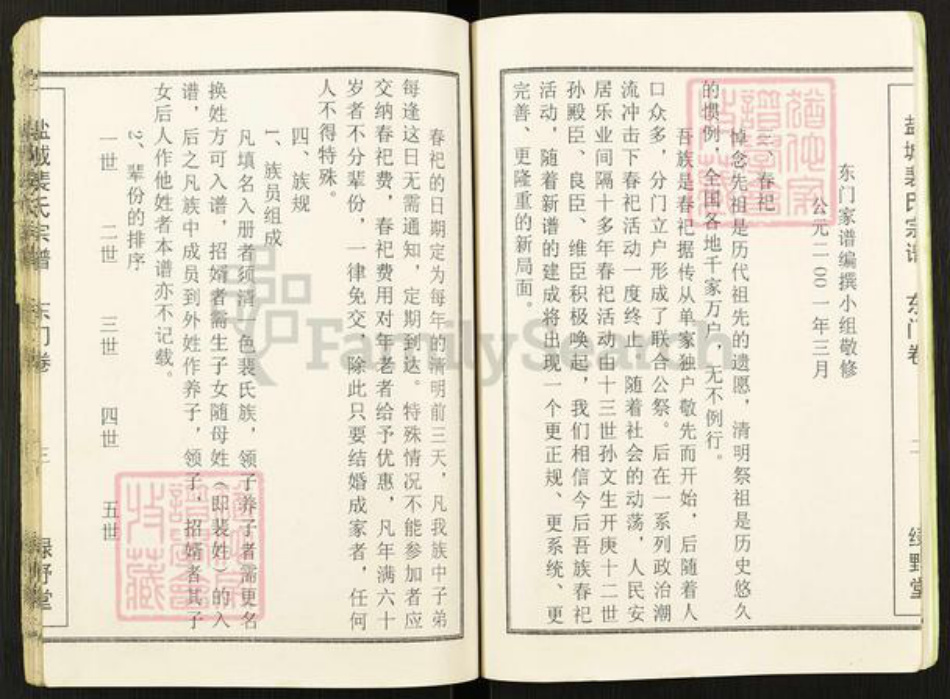 盐城裴氏宗谱 东门卷 二 绿野堂
东门家谱编撰小组敬修
公元二00一年三月
三、春祀
悼念先祖是历代祖先的遗愿，清明祭祖是历史悠久
的惯例，全国各地千家万户，无不例行。
吾族是春祀据传从单家独户敬先而开始，后随着人
口众多，分门立户形成了联合公祭。后在一系列政治潮
流冲击下春祀活动一度终止，随着社会的动荡，人民安
居乐业间隔十多年春祀活动由十三世孙文生开庚十二世
孙殿臣、良臣、维臣积极唤起，我们相信今后吾族春祀
活动，随着新谱的建成将出现一个更正规、更系统、更
完善、更隆重的新局面。
春祀的日期定为每年的清明前三天，凡我族中子弟
每逢这日无需通知，定期到达。特殊情况不能参加者应
交纳春祀费，春祀费用对年老者给予优惠，凡年满六十
岁者不分辈份，一律免交，除此只要结婚成家者，任何
人不得特殊。
四、族规
1、族员组成
凡填名入册者须清一色裴氏族，领子养子者需更名
换姓方可入谱，招婿者需生子女随母姓（即裴姓）的入
谱，后之凡族中成员到外姓作养子，领子，招婿者其子
女后人作他姓者本谱亦不记载。
2、辈份的排序
一世 二世 三世 四世 五世
盐城裴氏宗谱 东门卷 三 绿野堂
FamilySearch